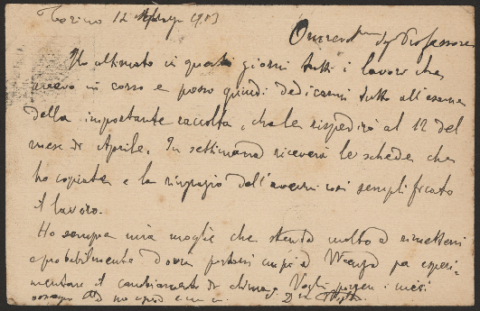 Torino 12 1903
Onorevolmo Sigr Professore
Ho ultimato in questi giorni tutti i lavori che
avevo in corso e posso quindi dedicarmi tutto all'esame
della importante raccolta, che le rispedirò al 12 del
mese di Aprile. In settimana riceverà le schede che
ho copiate e la ringrazio dell'avermi così semplificato
il lavoro.
Ho sempre mia moglie che stenta molto a rimettersi
e probabilmente dovrà portarsi a per speri-
mentare il cambiamento di clima. Voglia i miei